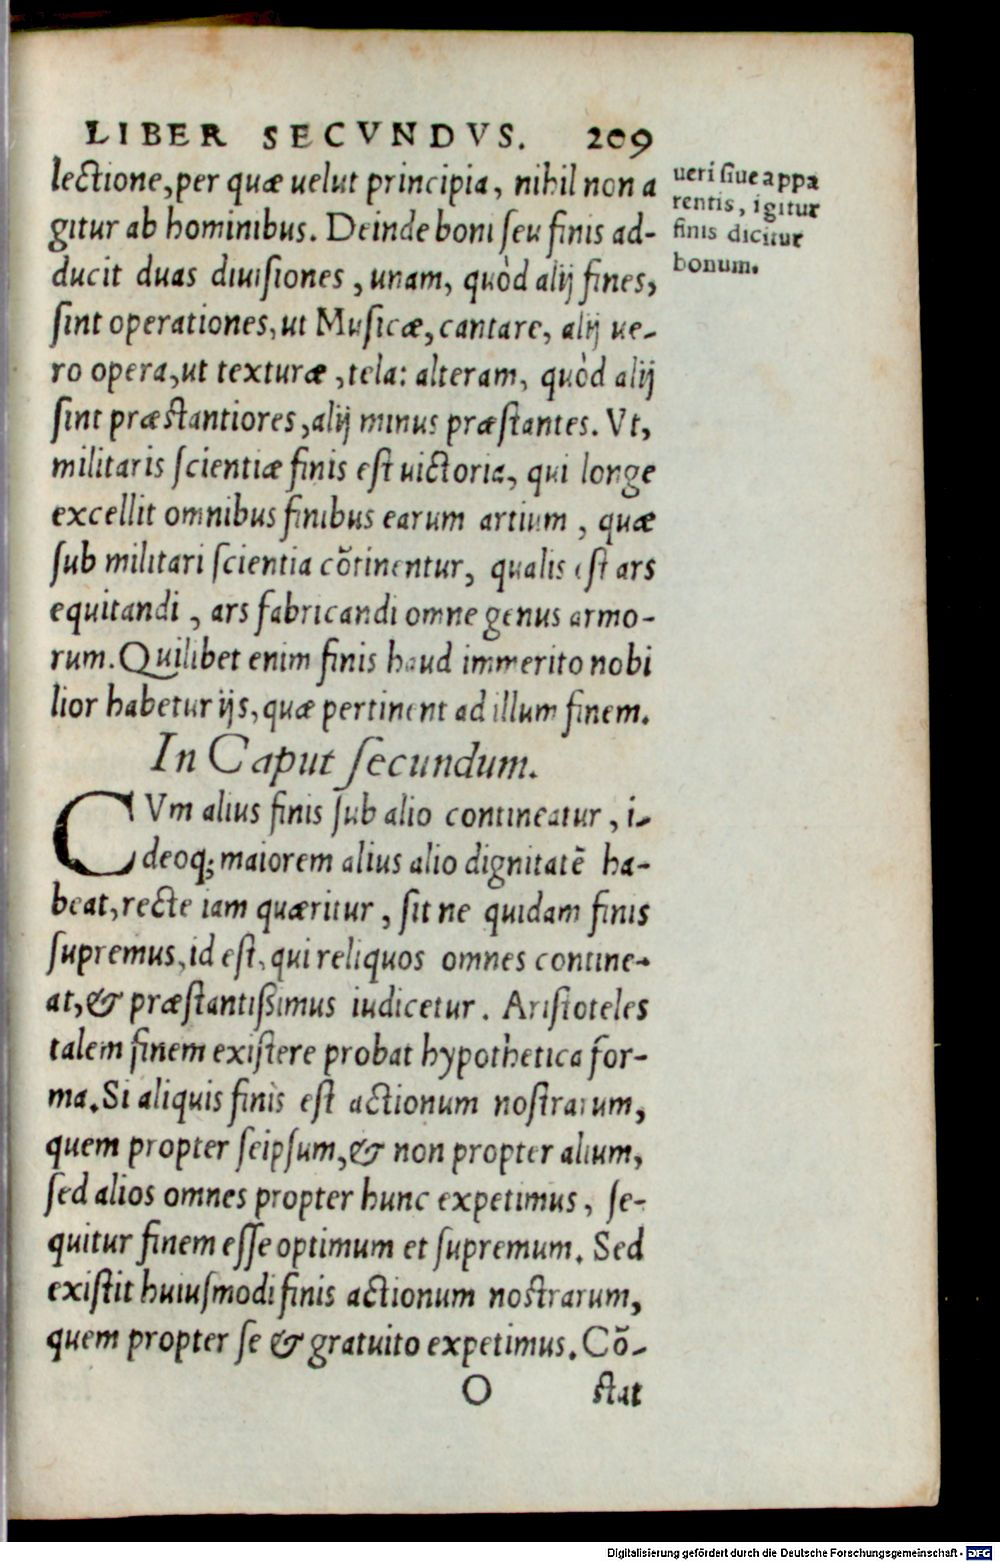 LIBER SECVNDVS. 209
lectione, per quæ uelut principia, nihil non a
gitur ab hominibus. Deinde boni ſeu finis ad-
ducit duas diuiſiones, unam, quòd alij fines,
ſint operationes, ut Muſicæ, cantare, alij ue-
ro opera, ut texturæ, tela: alteram, quòd alij
ſint præſtantiores, alij minus præſtantes. Vt,
militaris ſcientiæ finis eſt uictoria, qui longe
excellit omnibus finibus earum artium, quæ
ſub militari ſcientia cõtinentur, qualis eſt ars
equitandi, ars fabricandi omne genus armo-
rum. Quilibet enim finis haud immerito nobi
lior habetur ijs, quæ pertinent ad illum finem.
ueri ſiue appa
rentis, igitur
finis dicitur
bonum.
In Caput ſecundum.
CVm alius finis ſub alio contineatur, i-
deoq; maiorem alius alio dignitatẽ ha-
beat, recte iam quæritur, ſit ne quidam finis
ſupremus, id eſt, qui reliquos omnes contine-
at, & præſtantißimus iudicetur. Ariſtoteles
talem finem exiſtere probat hypothetica for-
ma. Si aliquis finis eſt actionum noſtrarum,
quem propter ſeipſum, & non propter alium,
ſed alios omnes propter hunc expetimus, ſe-
quitur finem eſſe optimum et ſupremum. Sed
exiſtit huiuſmodi finis actionum noſtrarum,
quem propter ſe & gratuito expetimus. Cõ-
O ſtat
Digitalisierung gefördert durch die Deutsche Forschungsgemeinschaft - DFG